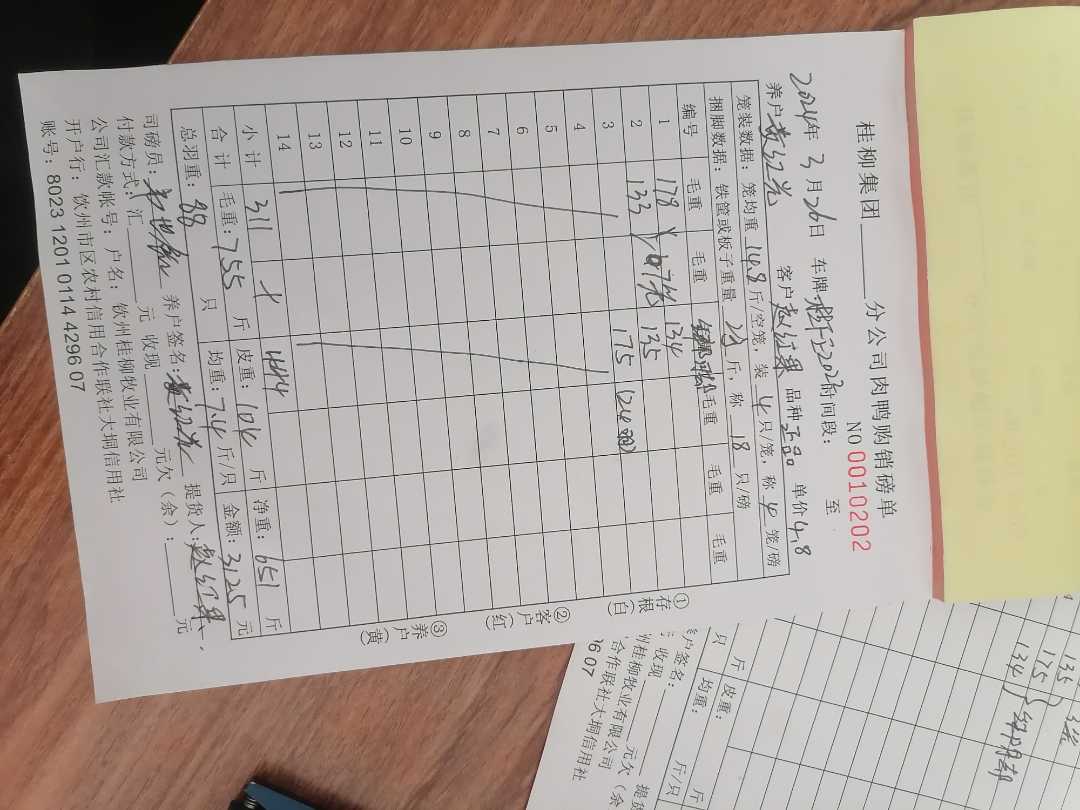 桂柳集团______分公司肉鸭购销磅单
NO 0010202
2024年 3 月 26 日 车牌: 时间段: 至
养户 黄红光 客户 品种 单价 4.8
笼装数据: 笼均重 14.8 斤/空笼, 装 4 只/笼, 称 4 笼/磅
捆脚数据: 铁筐或板子重量 23 斤, 称 18 只/磅
编号 毛重 毛重 毛重 毛重 毛重
1 178 134
135
2 133 175
3
4
5
6
7
8
9
10
11
12
13
14
小计 311 444
合计 毛重: 755 斤 皮重: 104 斤 净重: 651 斤
总羽重: 88 只 均重: 7.4 斤/只 金额: 3125 元
司磅员: 养户签名: 黄红光 提货人:
付款方式: 汇______元 收现______元欠(余):______元
公司汇款帐号: 户名: 钦州桂柳牧业有限公司
开户行: 钦州市区农村信用合作联社大垌信用社
账号: 8023 1201 0114 4296 07
①存根(白)
②客户(红)
③养户(黄)
135
175
134
斤 皮重: 斤
只 均重: 斤/只
户签名:
收现______元欠(余
州桂柳牧业有限公司
合作联社大垌信用社
96 07